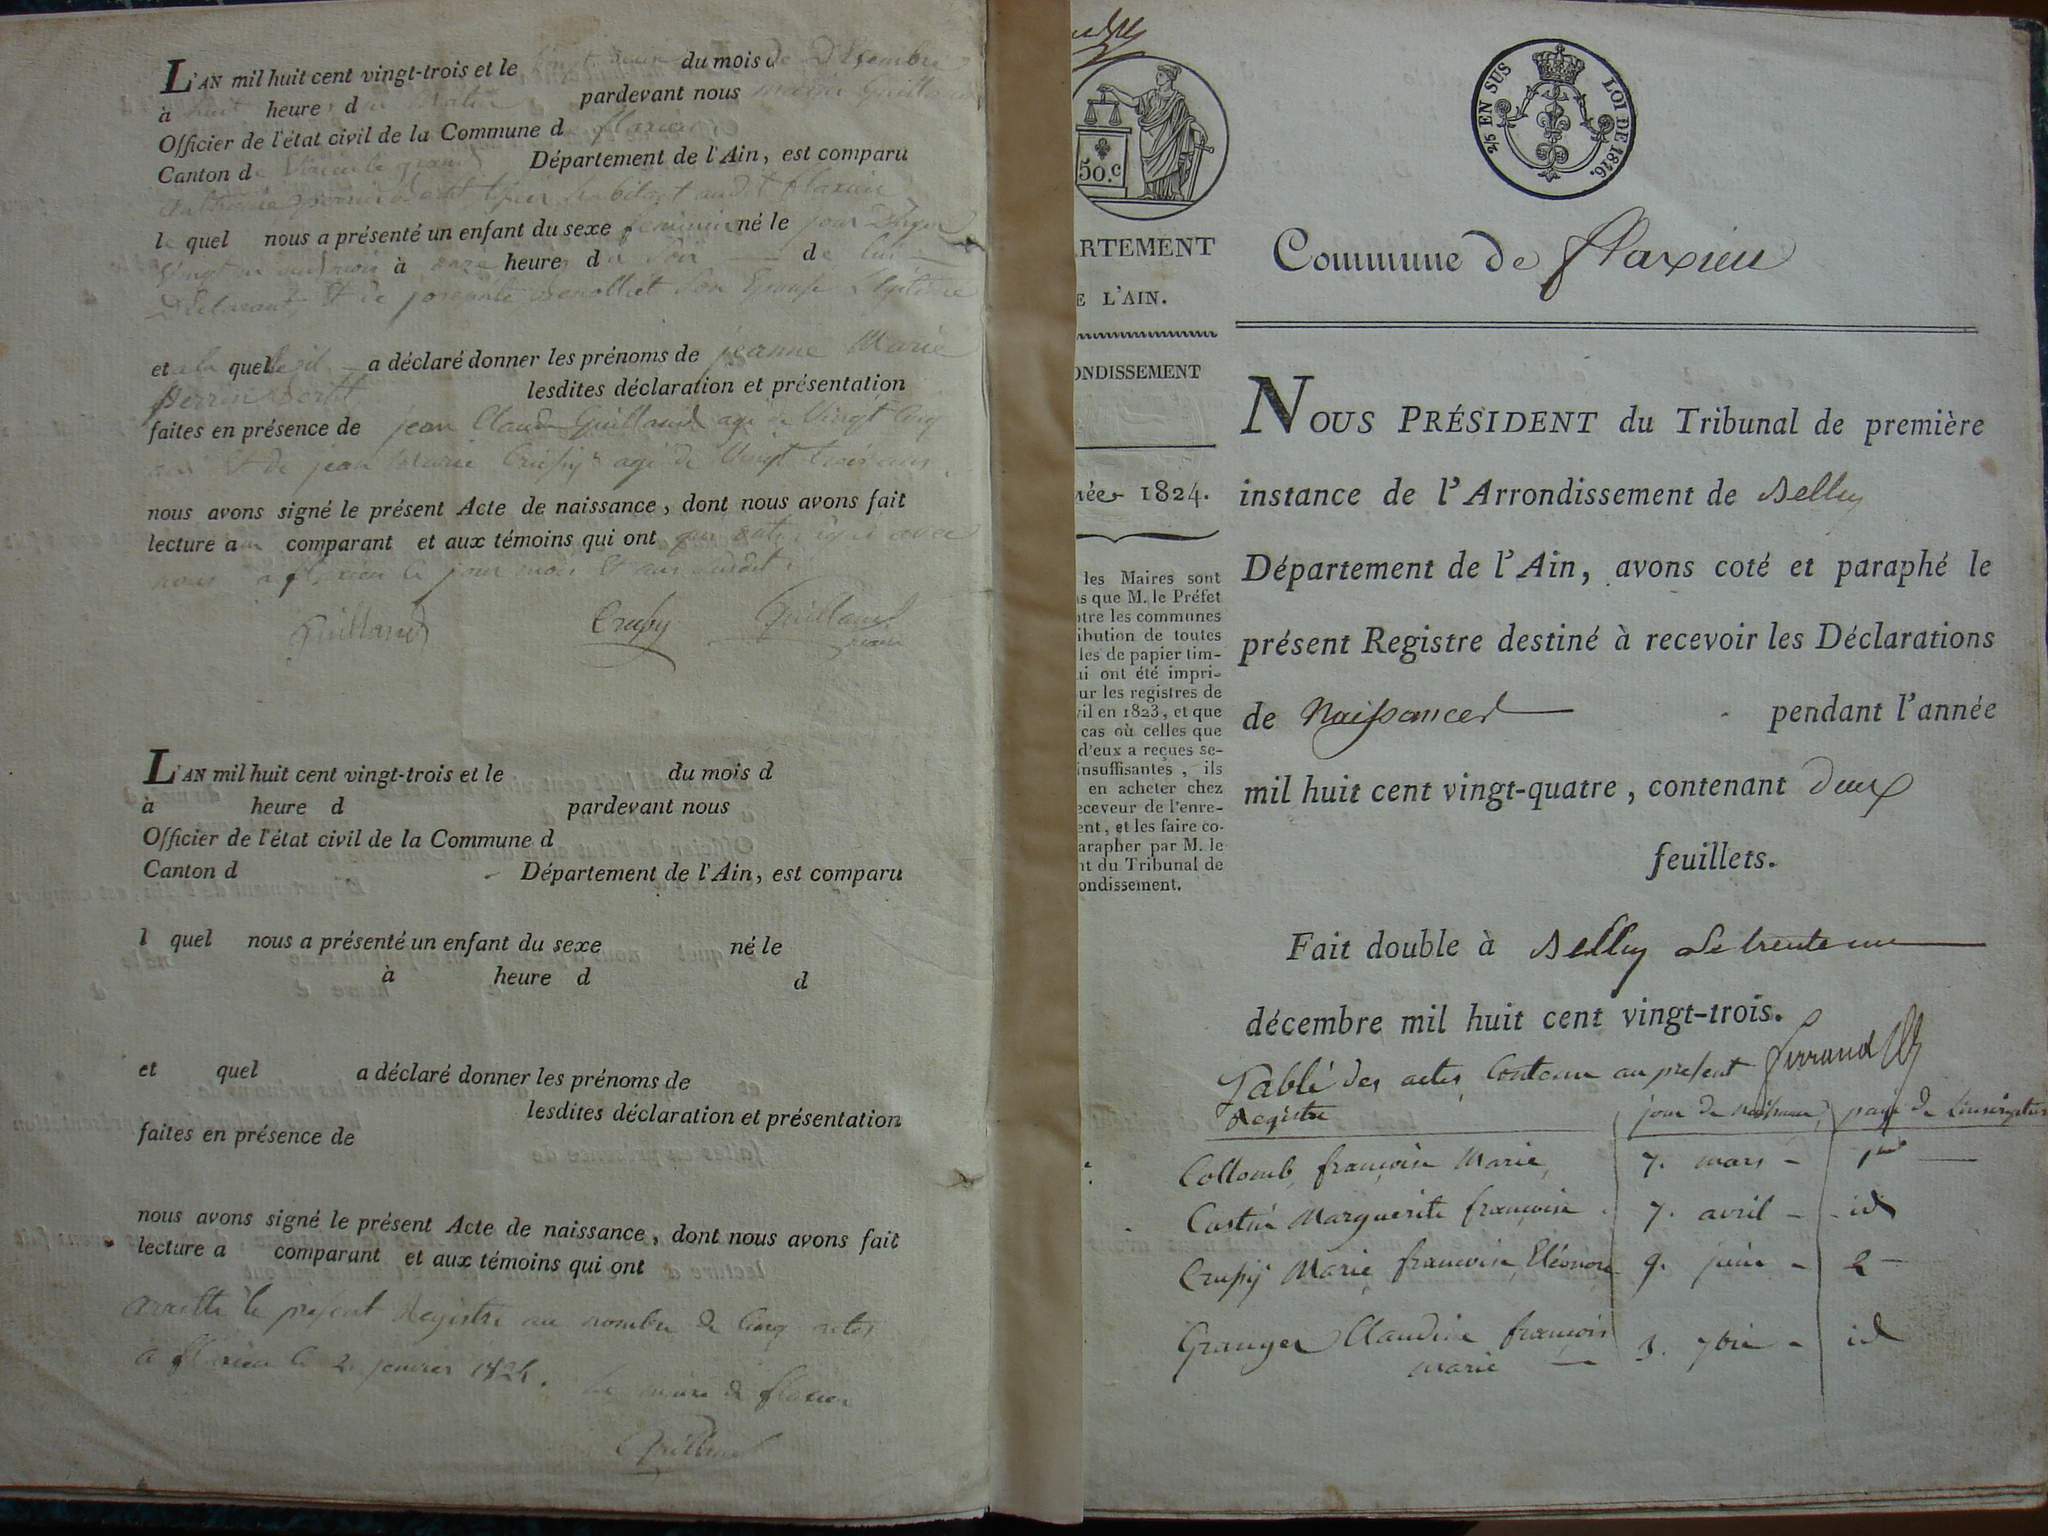 L'AN mil huit cent vingt-trois et le vingt deux du mois de Décembre
à huit heures du Matin pardevant nous
Officier de l'état civil de la Commune d flaxieu
Canton de Virieu le grand Département de l'Ain, est comparu
habitant audit flaxieu
le quel nous a présenté un enfant du sexe feminin né le jour D'hyer
vingt un du mois à onze heures du soir de lui
Déclarant, Et de Son Epouse Légitime
et a la quelle il a déclaré donner les prénoms de jeanne Marie
Perrin lesdites déclaration et présentation
faites en présence de jean Claude Guilland agé de Vingt Cinq
ans Et de jean Marie Crussy agé de Vingt trois ans
nous avons signé le présent Acte de naissance, dont nous avons fait
lecture au comparant et aux témoins qui ont avec
nous a flaxieu le jour mois Et an susdit.
Guilland Crussy Guilland
L'AN mil huit cent vingt-trois et le du mois d
à heure d pardevant nous
Officier de l'état civil de la Commune d
Canton d Département de l'Ain, est comparu
l quel nous a présenté un enfant du sexe né le
à heure d d
et quel a déclaré donner les prénoms de
lesdites déclaration et présentation
faites en présence de
nous avons signé le présent Acte de naissance, dont nous avons fait
lecture a comparant et aux témoins qui ont
arretté le present Registre au nombre de Cinq actes
a flaxieu le 2 janvier 1824. Le maire de flaxieu
Guilland
50.c
2/5 EN SUS LOI DE 1816.
RTEMENT
E L'AIN.
ONDISSEMENT
née 1824.
les Maires sont
s que M. le Préfet
ntre les communes
ibution de toutes
les de papier tim-
ui ont été impri-
ur les registres de
il en 1823, et que
cas où celles que
d'eux a reçues se-
insuffisantes, ils
en acheter chez
eceveur de l'enre-
ent, et les faire co-
arapher par M. le
nt du Tribunal de
ondissement.
Commune de flaxieu
NOUS PRÉSIDENT du Tribunal de première
instance de l'Arrondissement de Belley
Département de l'Ain, avons coté et paraphé le
présent Registre destiné à recevoir les Déclarations
de Naissances pendant l'année
mil huit cent vingt-quatre, contenant deux
feuillets.
Fait double à Belley Le trente un
décembre mil huit cent vingt-trois.
Table des actes Contenu au present
Registre jour de naissance page de l'inscription
Collomb, françoise Marie, 7. mars - 1er
Castin Marguerite françoise 7. avril - id
Crussy Marie françoise Eléonore 9. juin - 2
Granger Claudine françois 3. 7bre - id
marie